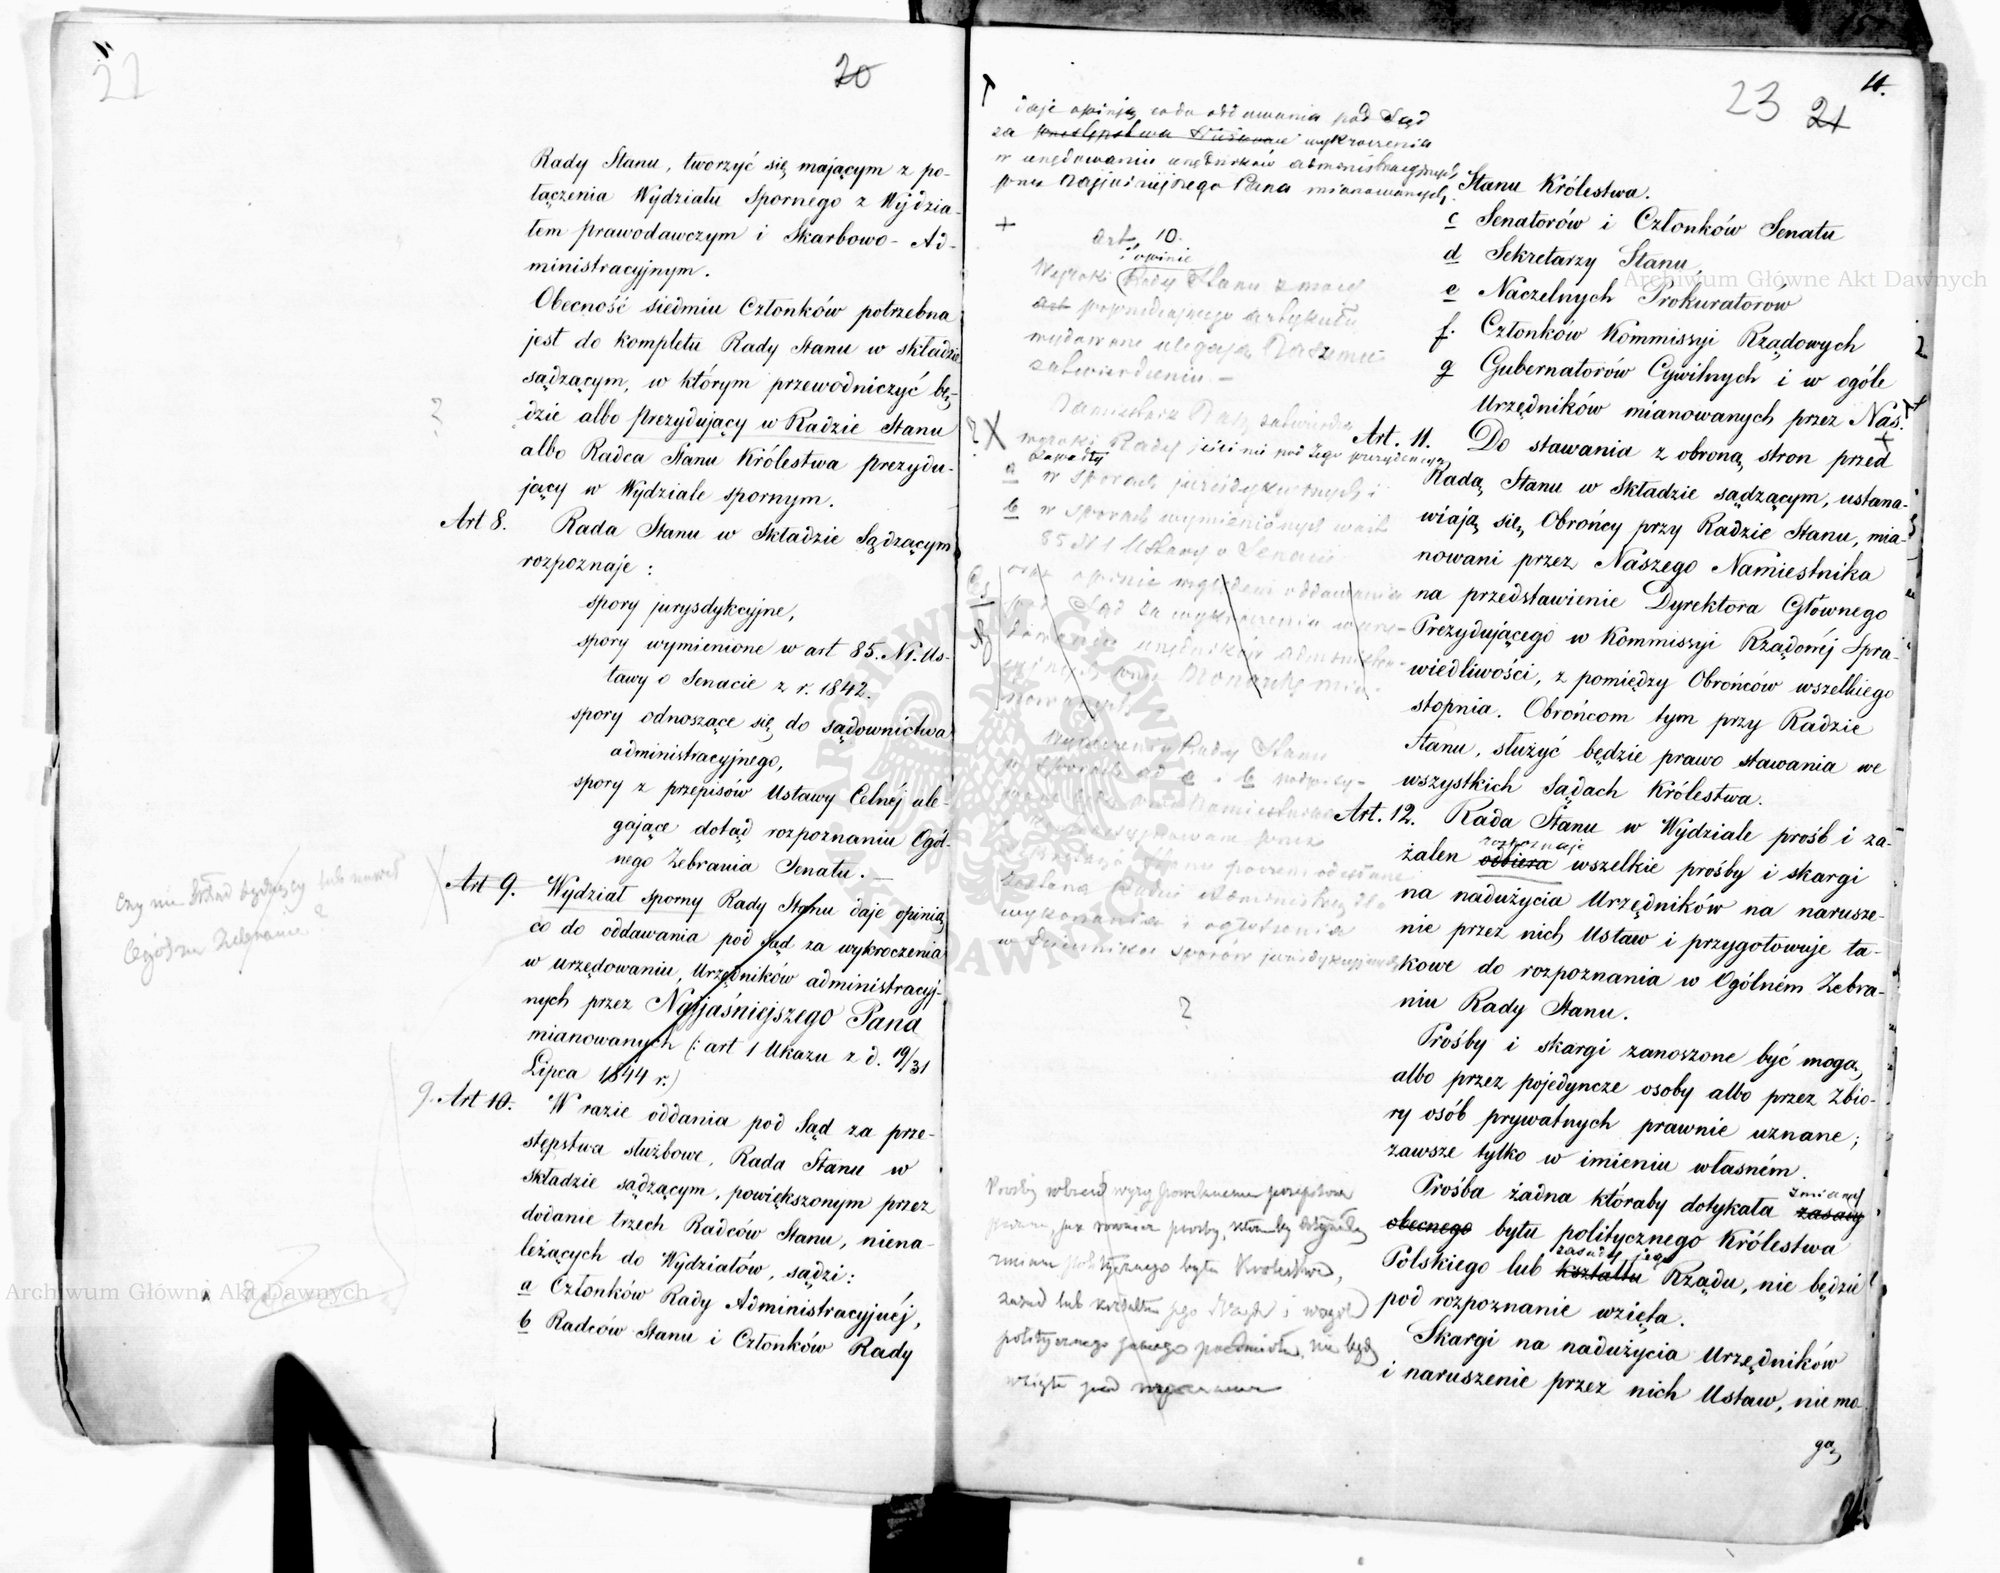 22
20
Rady Stanu, tworzyć się mającym z po-
łączenia Wydziału Spornego z Wydzia-
łem prawodawczym i Skarbowo-Ad-
ministracyjnym.
Obecność siedmiu Członków potrzebna
jest do kompletu Rady Stanu w składzie
sądzącym, w którym przewodniczyć bę-
?
dzie albo prezydujący w Radzie Stanu
albo Radca Stanu Królestwa prezydu-
jący w Wydziale spornym.
Art 8. Rada Stanu w Składzie Sądzącym
rozpoznaje:
spory jurysdykcyjne,
spory wymienione w art 85. N1. Us-
tawy o Senacie z r. 1842.
spory odnoszące się do sądownictwa
administracyjnego,
spory z przepisów Ustawy Celnéj ule-
gające dotąd rozpoznaniu Ogól-
nego Zebrania Senatu.—
Czy nie Skład Sądzący lub nawet
Ogólne Zebranie?
Art 9. Wydział sporny Rady Stanu daje opinią
co do oddawania pod Sąd za wykroczenia
w Urzędowaniu, Urzędników administracyj-
nych przez Najjaśniejszego Pana
mianowanych (: art 1 Ukazu z d. 19/31
Lipca 1844 r.)
9. Art 10. W razie oddania pod Sąd za prze-
stępstwa służbowe, Rada Stanu w
składzie sądzącym, powiększonym przez
dodanie trzech Radców Stanu, niena-
leżących do Wydziałów, sądzi:
a Członków Rady Administracyjnéj,
b Radców Stanu i Członków Rady
11.
23 21
daje opinją co do oddawania pod Sąd
za przestępstwa służbowe wykroczenia
w urzędowaniu urzędników administracyjnych
przez Najjaśniejszego Pana mianowanych.
+
Art. 10.
i opinie
Wyroki Rady Stanu z mocy
art poprzedzającego artykułu
wydawane ulegają Naszemu
zatwierdzeniu.—
Namiestnik Nasz zatwierdza
? X
wyroki Rady jeśli nie pod Jego prezydencyą
zapadły
a w sporach jurisdykcyjnych i
b w sporach wymienionych w art.
85 N 1 Ustawy o Senacie
oraz opinie względem oddawania
pod Sąd za wykroczenia w urzę-
dowaniu urzędników administra-
cyjnych przez Monarchę mia-
nowanych
Rady Stanu
w sporach od a i b
wykonania i ogłoszenia
w Dzienniku sporów jurisdykcyjnych
?
zmiany politycznego bytu Królestwa,
zasad lub kształtu jego Rządu i w ogóle
politycznego jakiego przedmiotu, nie będą
wzięte pod rozpoznanie
Stanu Królestwa.
c Senatorów i Członków Senatu
d Sekretarzy Stanu,
e Naczelnych Prokuratorów
f. Członków Kommissyi Rządowych
g Gubernatorów Cywilnych i w ogóle
Urzędników mianowanych przez Nas.
+
Art. 11. Do stawania z obroną stron przed
Radą Stanu w Składzie sądzącym, ustana-
wiają się Obrońcy przy Radzie Stanu, mia-
nowani przez Naszego Namiestnika
na przedstawienie Dyrektora Głównego
Prezydującego w Kommissyi Rządowéj Spra-
wiedliwości, z pomiędzy Obrońców wszelkiego
stopnia. Obrońcom tym przy Radzie
Stanu, służyć będzie prawo stawania we
wszystkich Sądach Królestwa.
Art. 12. Rada Stanu w Wydziale prośb i za-
rozpoznaje
żaleń odbiera wszelkie prośby i skargi
na nadużycia Urzędników na narusze-
nie przez nich Ustaw i przygotowuje ta-
kowe do rozpoznania w Ogólném Zebra-
niu Rady Stanu.
Prośby i skargi zanoszone być mogą,
albo przez pojedyncze osoby albo przez Zbio-
ry osób prywatnych prawnie uznane;
zawsze tylko w imieniu własném.
zmiany
Prośba żadna któraby dotykała zasady
obecnego bytu politycznego Królestwa
zasady jego
Polskiego lub kształtu Rządu, nie będzie
pod rozpoznanie wzięta.
Skargi na nadużycia Urzędników
i naruszenie przez nich Ustaw, nie mo-
gą
Archiwum Główne Akt Dawnych
Archiwum Główne Akt Dawnych
ARCHIWUM GŁÓWNE AKT DAWNYCH